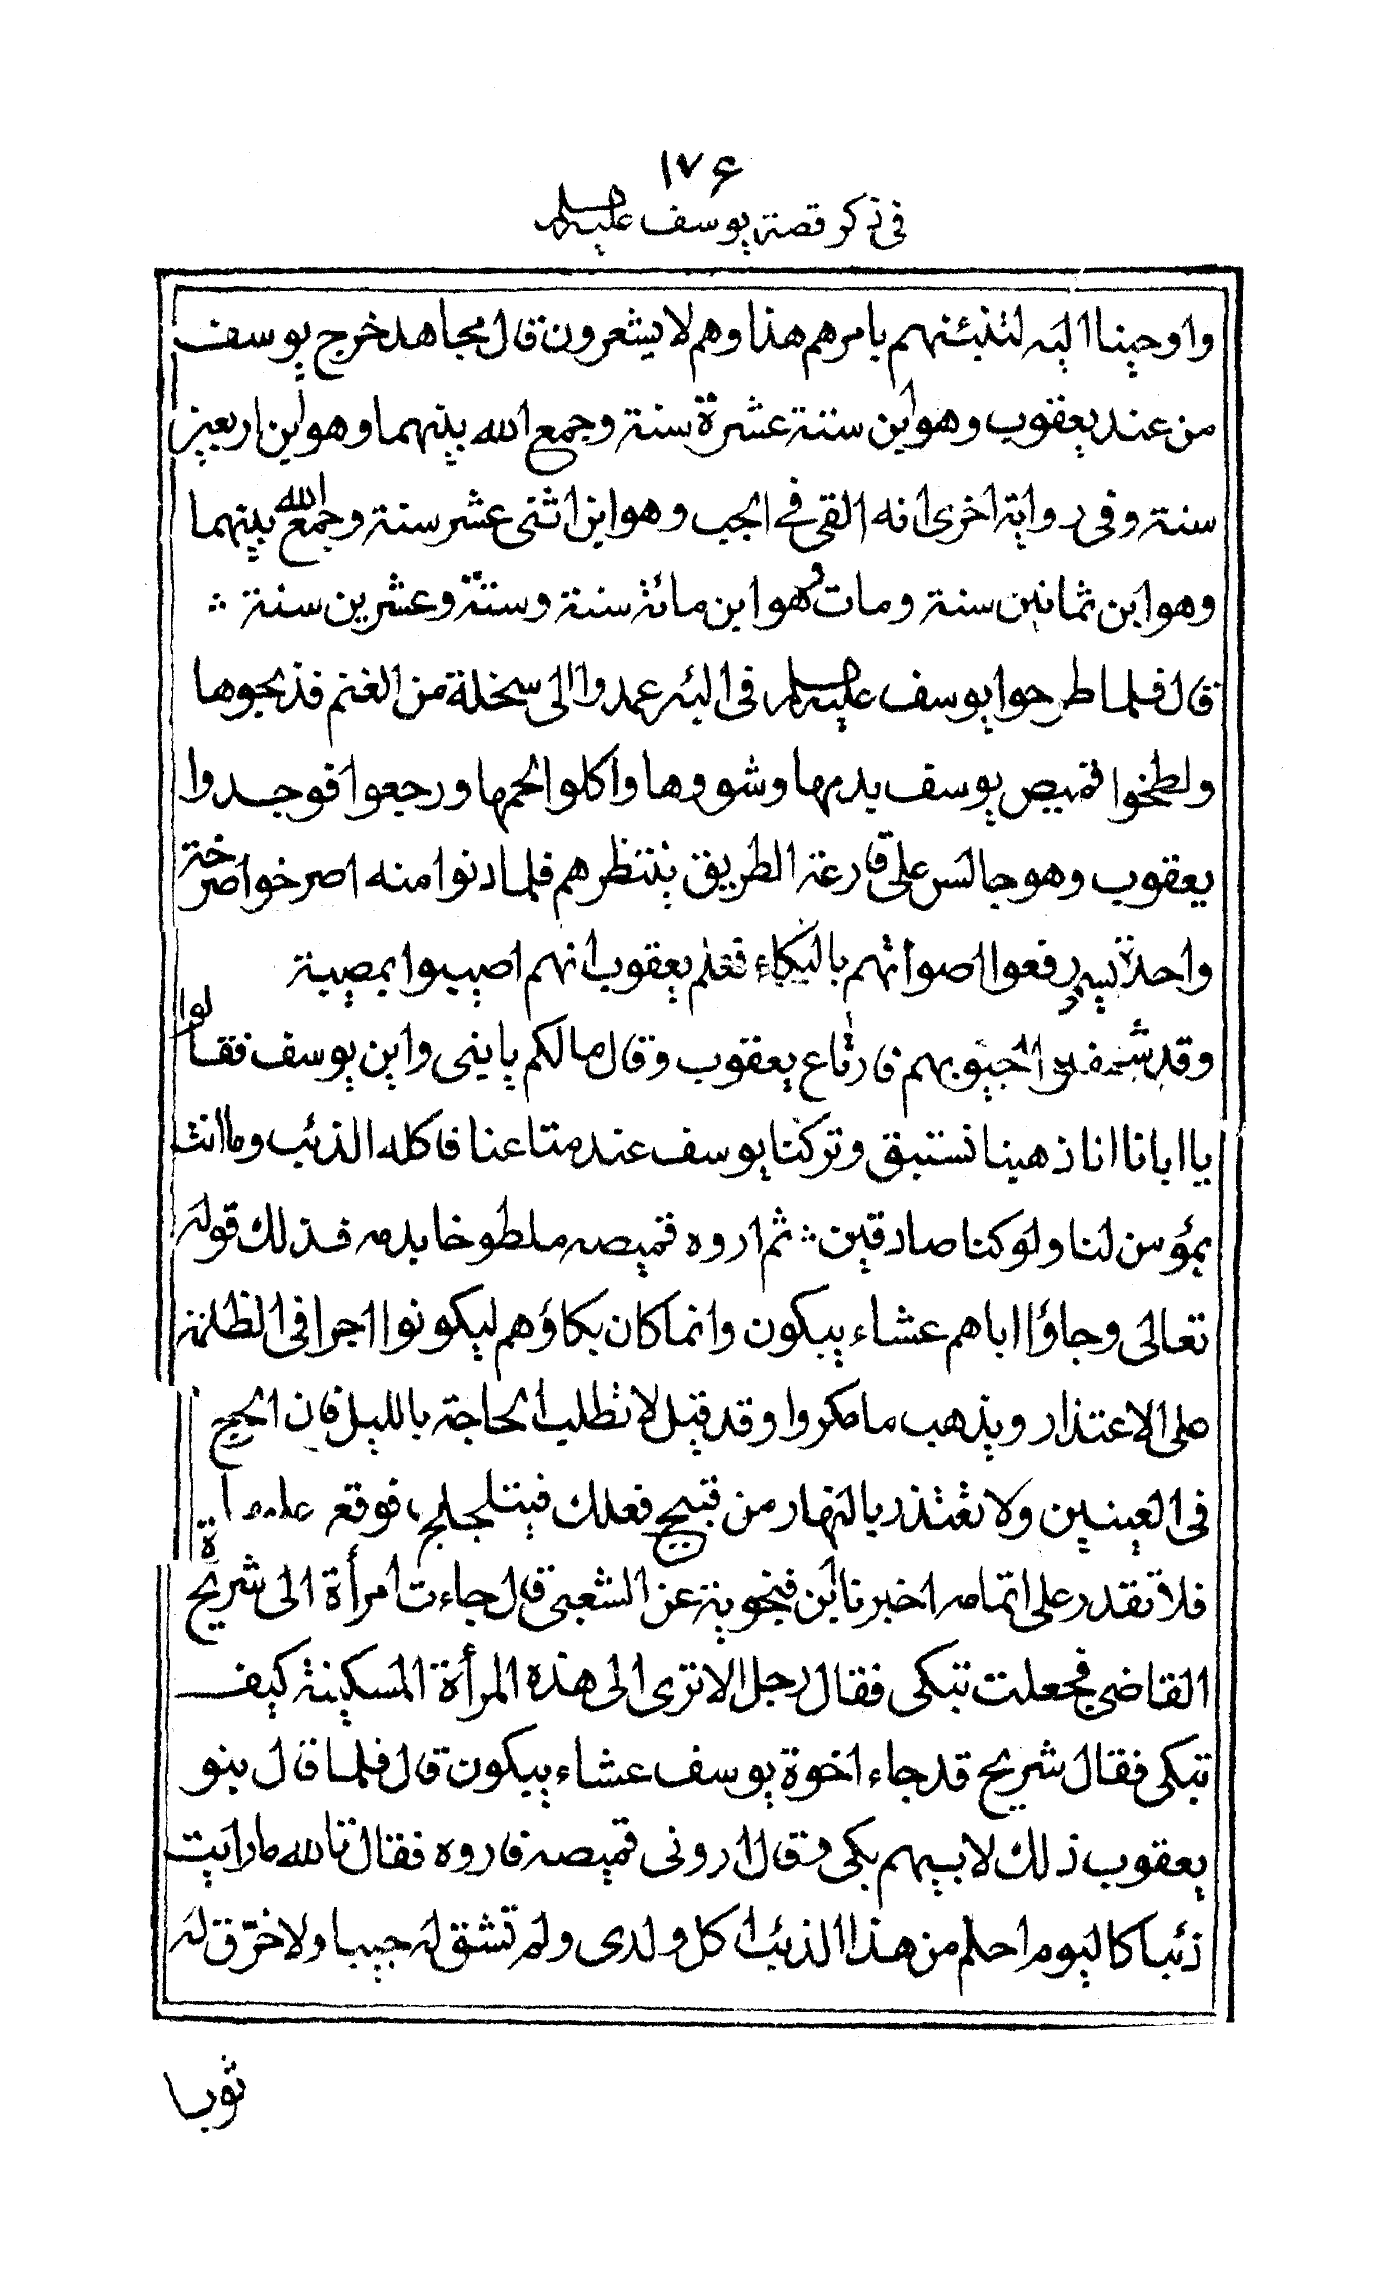 ١٧٦
في ذكر قصة يوسف عليه السلام
واوحينا اليه لتنبئنهم بامرهم هذا وهم لا يشعرون قال مجاهد خرج يوسف
من عند يعقوب وهو ابن ستة عشرة سنة وجمع الله بينهما وهو ابن اربعين
سنة وفي رواية اخرى انه القي في الجب وهو ابن اثنى عشر سنة وجمع الله بينهما
وهو ابن ثمانين سنة ومات وهو ابن مائة سنة وستة وعشرين سنة
قال فلما طرحوا يوسف عليه السلام في البئر عمدوا الى سخلة من الغنم فذبحوها
ولطخوا قميص يوسف بدمها وشووها واكلوا لحمها ورجعوا فوجدوا
يعقوب وهو جالس على قارعة الطريق ينتظرهم فلما دنوا منه اصرخوا صرخة
واحدة رفعوا اصواتهم بالبكاء فعلم يعقوب انهم اصيبوا بمصيبة
وقد الجيوبهم فارتاع يعقوب وقال مالكم يا بني واين يوسف فقالوا
يا ابانا انا ذهبنا نستبق وتركنا يوسف عند متاعنا فاكله الذئب وما انت
بمؤمن لنا ولو كنا صادقين ثم اروه قميصه ملطوخا بدمه فذلك قوله
تعالى وجاؤا اباهم عشاء يبكون وانما كان بكاؤهم ليكونوا اجرا في الظلمة
على الاعتذار ويذهب ما مكروا وقد قيل لا تطلب الحاجة بالليل فان الحج
في العينين ولا تعتذر بالنهار من قبيح فعلك فيتلجلج فوقع
فلا تقدر على اتمامه اخبرنا ابن فنجوية عن الشعبى قال جاءت امرأة الى شريح
القاضي فجعلت تبكى فقال رجل الا ترى الى هذه المرأة المسكينة كيف
تبكى فقال شريح قد جاء اخوة يوسف عشاء يبكون قال فلما قال بنو
يعقوب ذلك لابيهم بكى وقال ارونى قميصه فاروه فقال تالله ما رايت
ذئبا كاليوم احلم من هذا الذئب اكل ولدى ولم تشق له جيبا ولا خرّق له
ثوبا